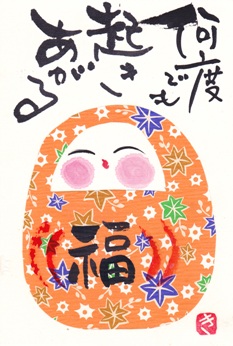 何度でも
起き
あがる
福